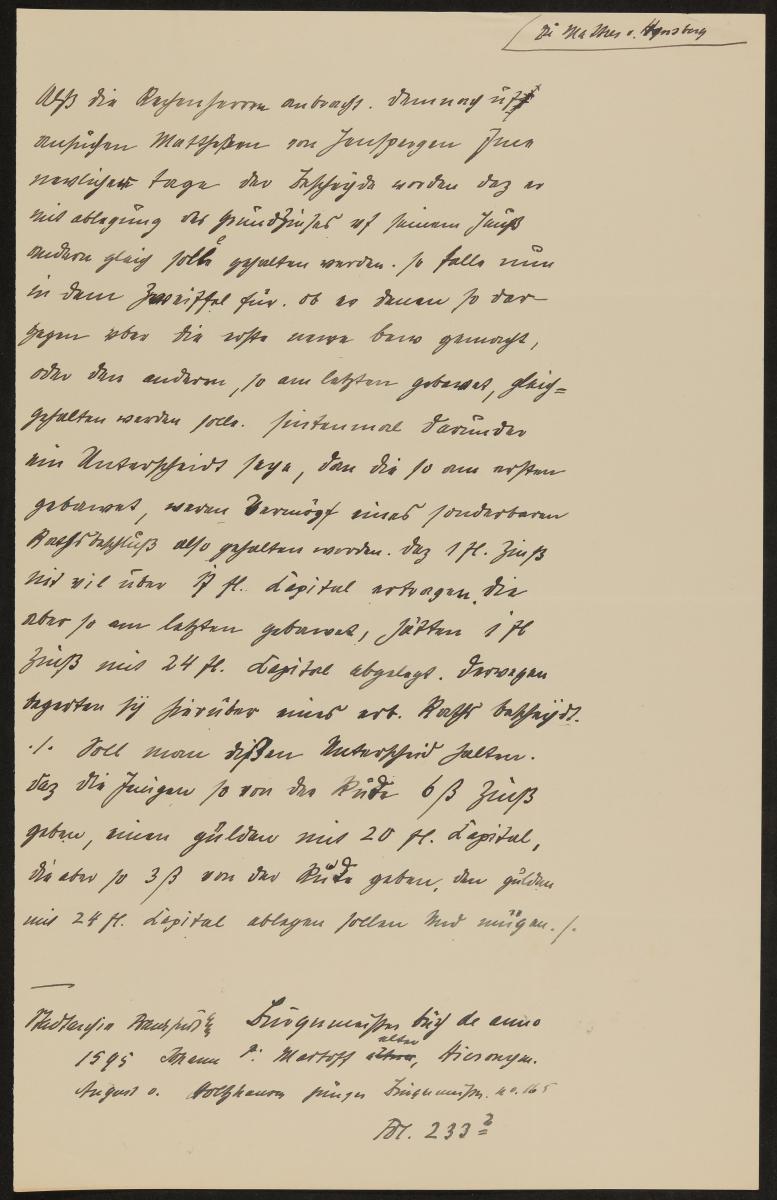 Zu Mathes v. Hensberg
Alß die Rechenherren anbracht. demnach uff
ansuchen Matthesen von Henspergen Ime
newlicher tage der Bescheyde worden daz er
mit ablegung des Grundzinses uf seinem Hauß
andern gleich solle gehalten werden. so falle nun
in dem Zweiffel für. ob er denen so dar-
gegen uber die erste newe bew gemacht,
oder den anderen, so am letzten gebawet, gleich=
gehalten werden solle. sintenmal darunder
ein Unterscheidt seye, dan die so am ersten
gebawet, weren Vermög eines sonderbaren
Rathsbeschluß also gehalten worden. daz 1 fl. Zinß
mit fl. Capital ertragen. die
aber so am letzten gebawet, hätten 1 fl
Zinß mit 24 fl. Capital abgelegt. derwegen
begerten sy hierüber eines erb. Raths bescheydt.
./. Soll man dißen Unterscheid halten.
daz die Jenigen so von der Rude 6 ß Zinß
geben, einen gulden mit 20 fl. Capital,
die aber so 3 ß von der Rude geben, den gulden
mit 24 fl. Capital ablegen sollen und mügen. /.
Stadtarchiv Frankfurt Bürgermeister buch de anno
1595 Johann alter, Hieronym.
August v. Holzhausen junger Bürgermstr. no. 165
Fol. 233 2